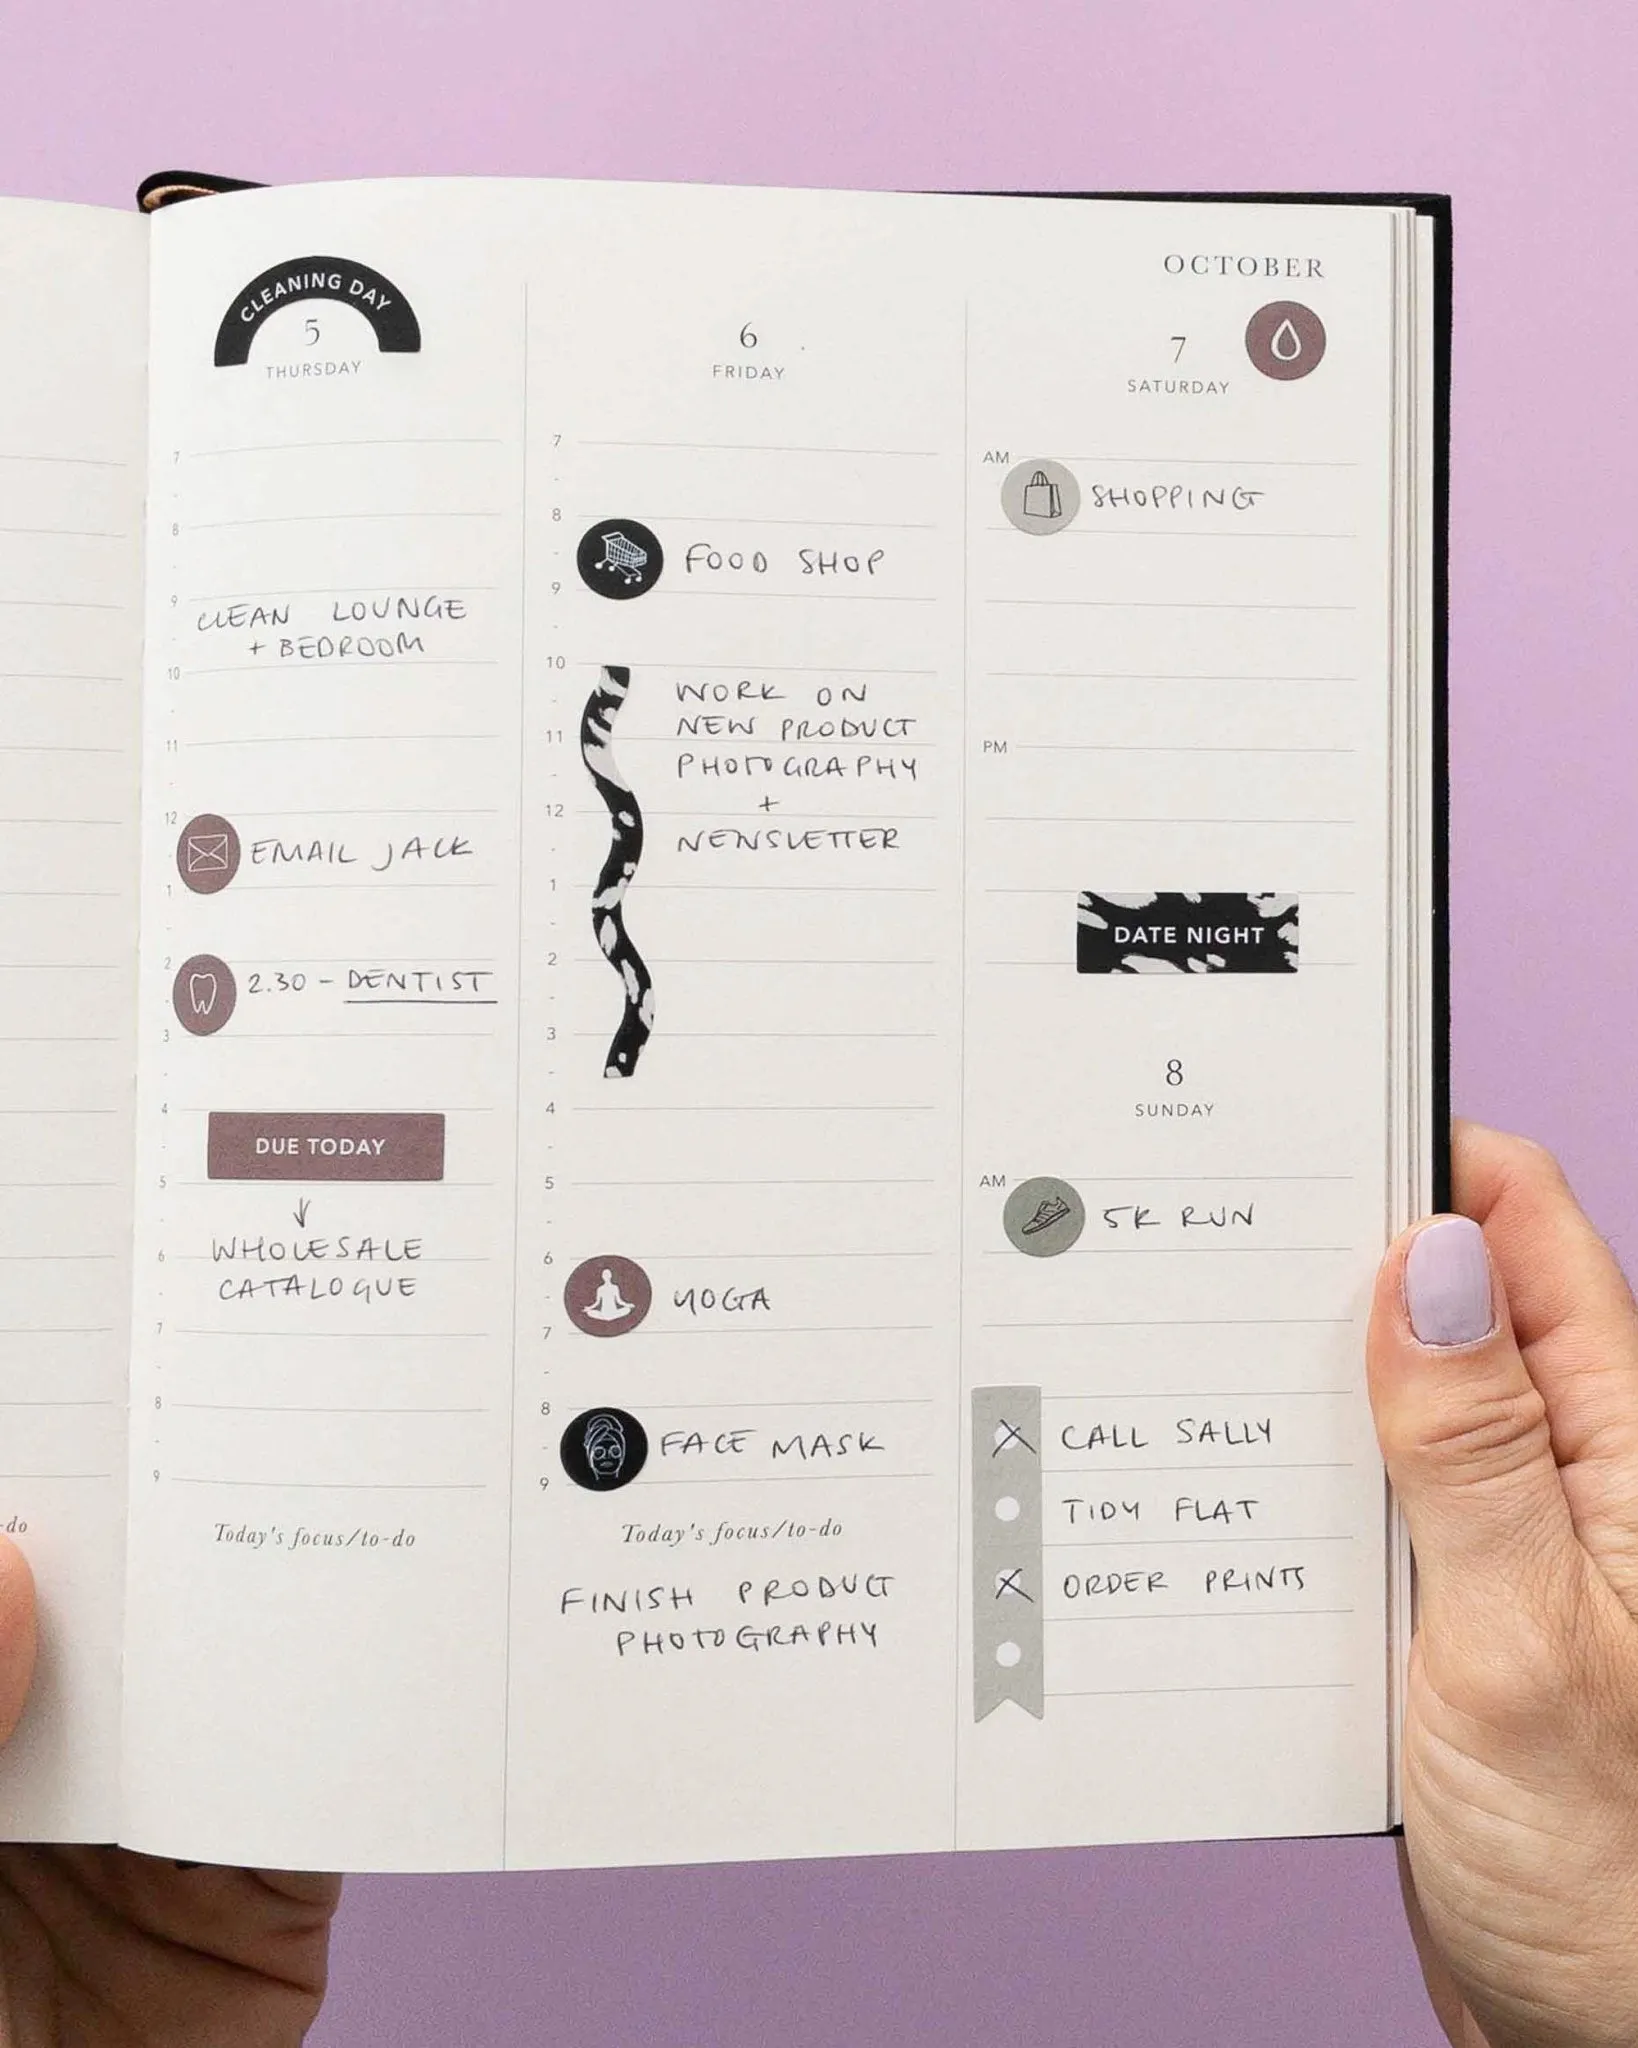 -do
CLEANING DAY
5
THURSDAY
7
8
9
CLEAN LOUNGE
+ BEDROOM
10
11
12
EMAIL JACK
1
2
2.30 - DENTIST
3
4
DUE TODAY
5
WHOLESALE
6
CATALOGUE
7
8
9
Today's focus/to-do
6
FRIDAY
7
8
FOOD SHOP
9
10
WORK ON
NEW PRODUCT
11
PHOTOGRAPHY
+
12
NEWSLETTER
1
2
3
4
5
6
YOGA
7
8
FACE MASK
9
Today's focus/to-do
FINISH PRODUCT
PHOTOGRAPHY
OCTOBER
7
SATURDAY
AM
SHOPPING
PM
DATE NIGHT
8
SUNDAY
AM
5K RUN
CALL SALLY
TIDY FLAT
ORDER PRINTS